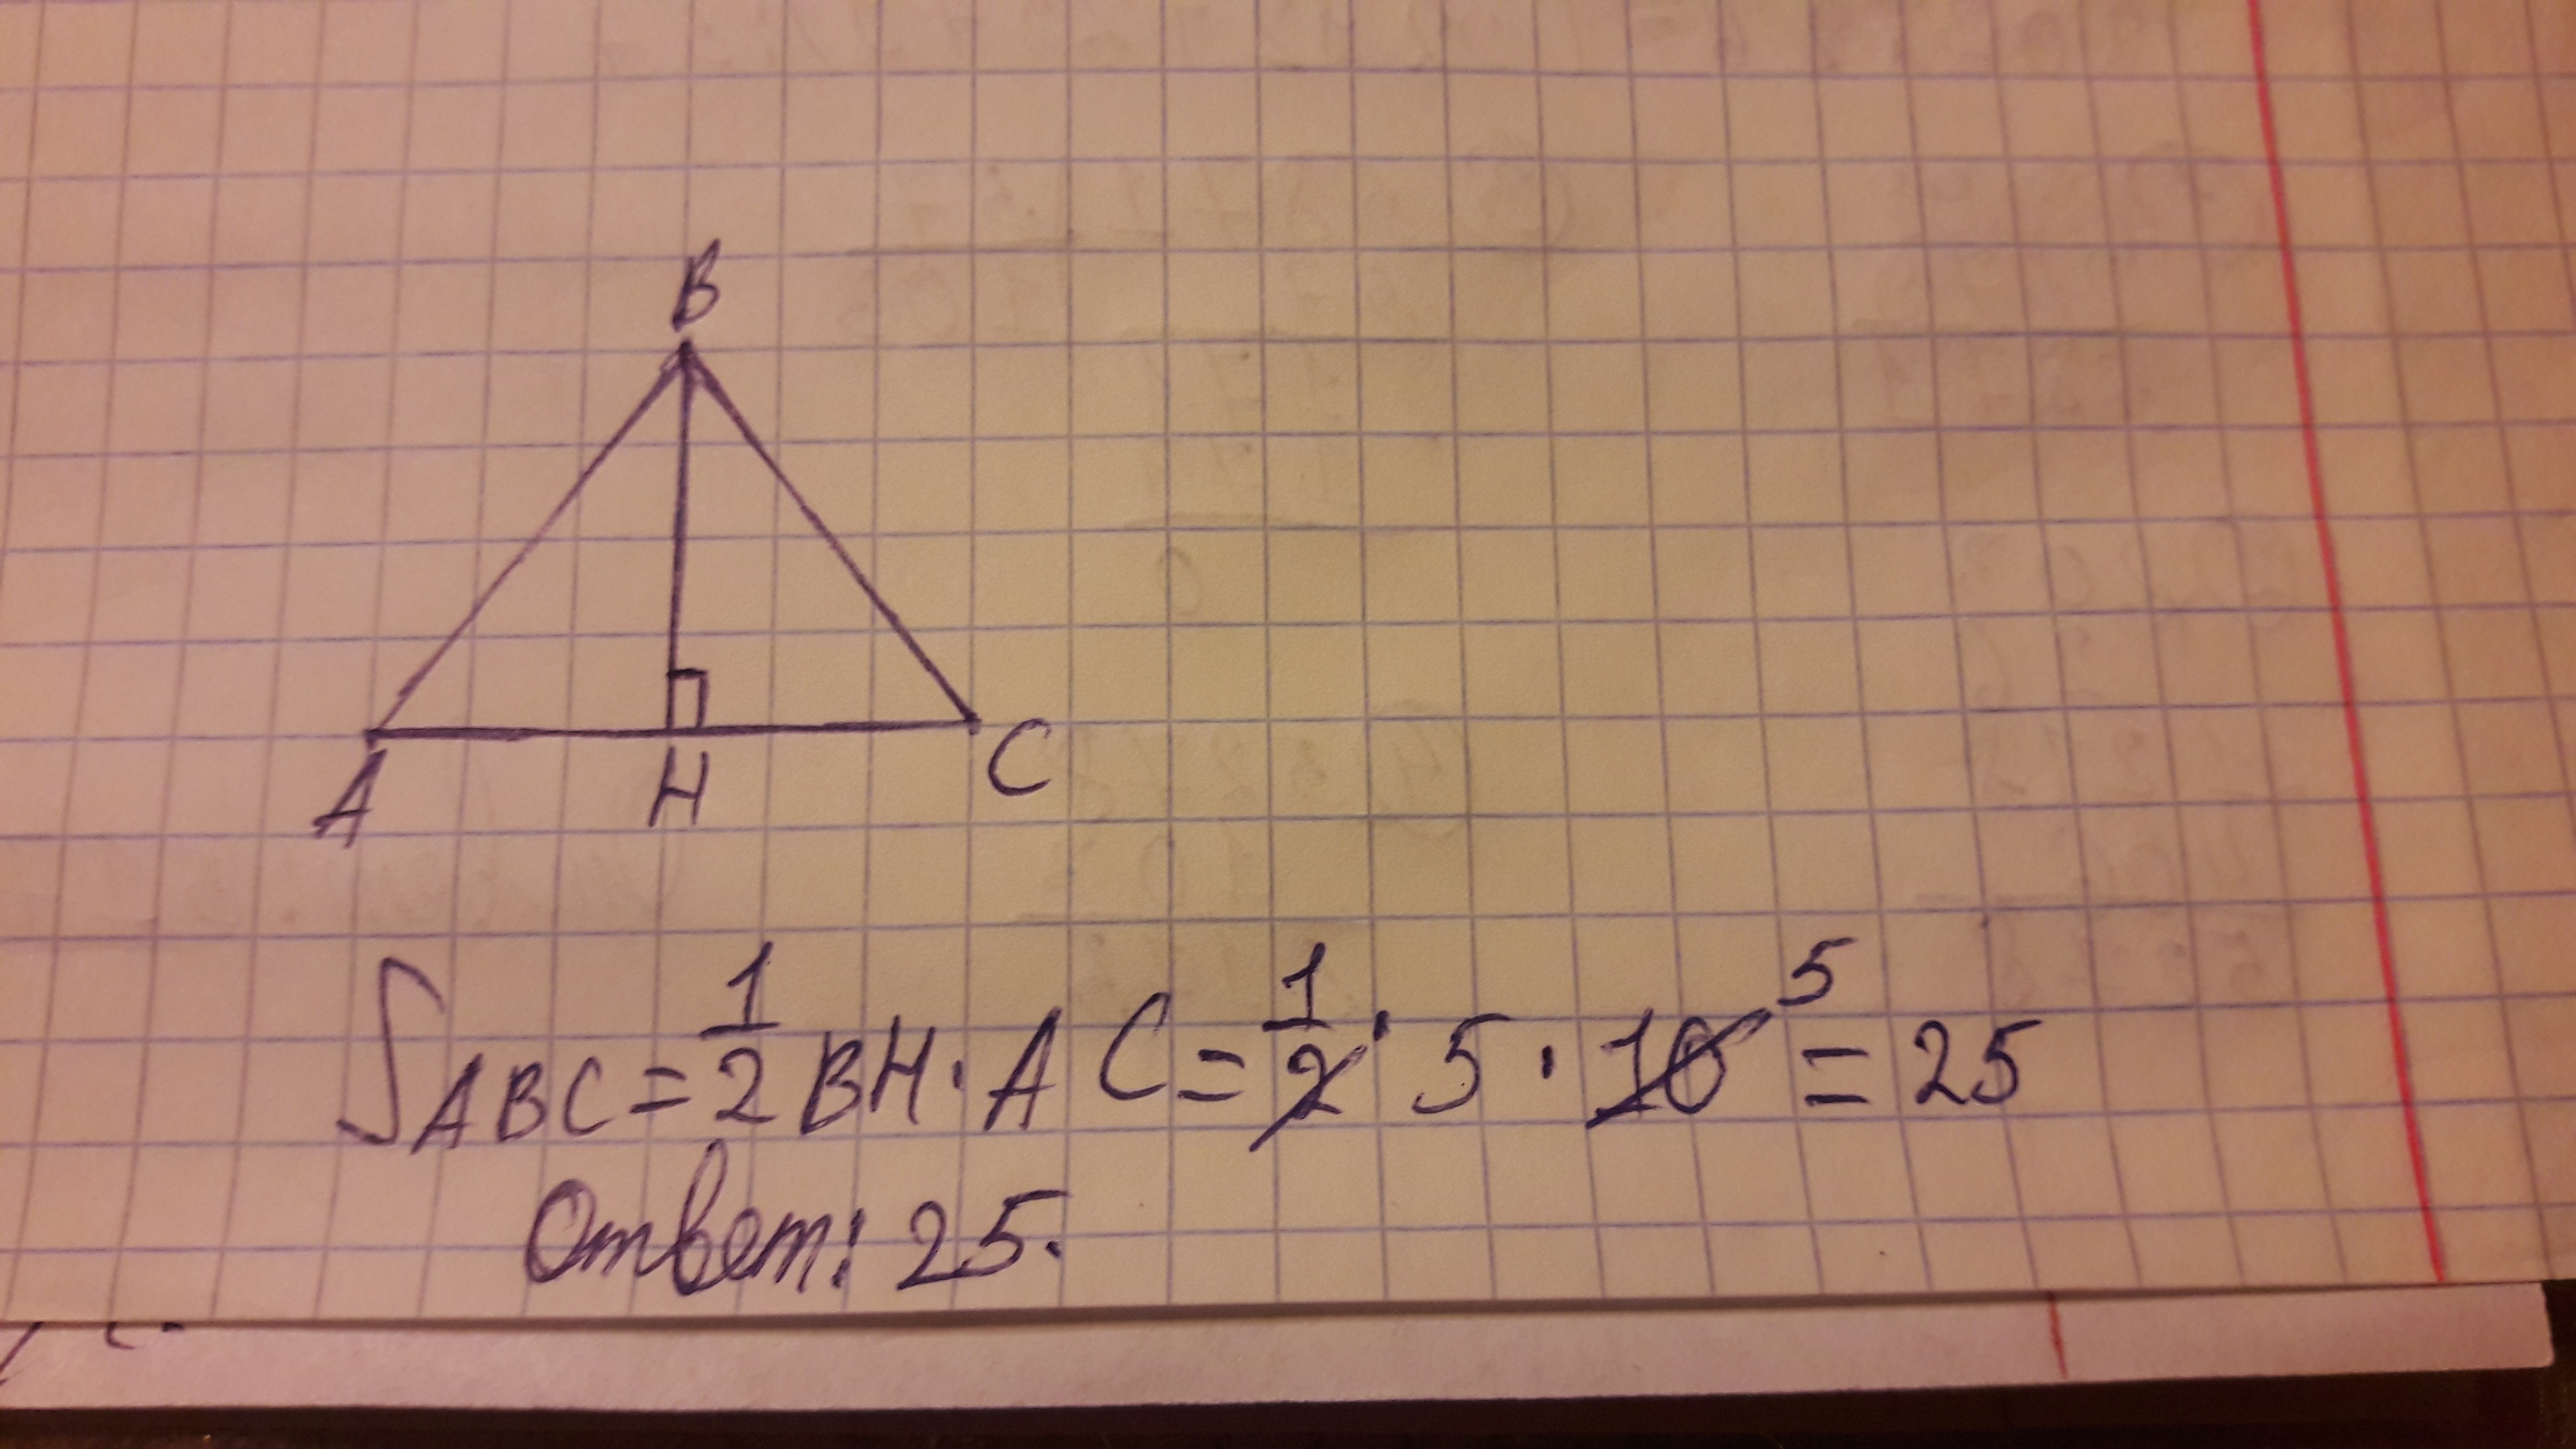 B
A H C
S ABC = 1/2 BH · AC = 1/2 · 5 · 10 5 = 25
Ответ: 25.